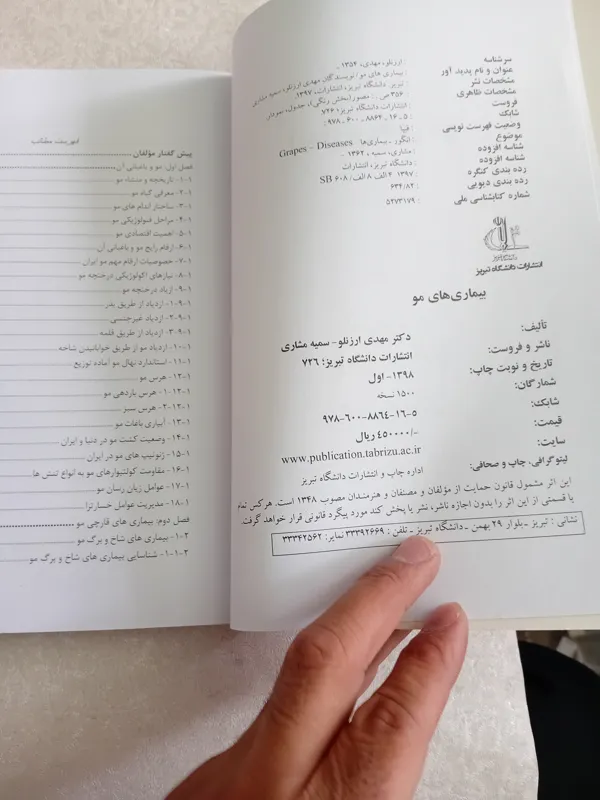 سرشناسه : ارزنلو، مهدی، ۱۳۵۴ -
عنوان و نام پدید آور : بیماری های مو / نویسندگان مهدی ارزنلو، سمیه مشاری
مشخصات نشر : تبریز: دانشگاه تبریز، انتشارات، ۱۳۹۷.
مشخصات ظاهری : ۳۵۶ ص. : مصور(بخش رنگی)، جدول، نمودار
فروست : انتشارات دانشگاه تبریز؛ ۷۲۶
شابک : ۹۷۸ - ۶۰۰ - ۸۸۶۴ - ۱۶ - ۵
وضعیت فهرست نویسی : فیپا
موضوع : انگور - بیماری‌ها Grapes – Diseases
شناسه افزوده : مشاری، سمیه، ۱۳۶۲ -
شناسه افزوده : دانشگاه تبریز، انتشارات
رده بندی کنگره : ۱۳۹۷ ۴الف ۸الف/ SB ۶۰۸
رده بندی دیویی : ۶۳۴/۸۲
شماره کتابشناسی ملی : ۵۲۷۳۱۷۹
انتشارات دانشگاه تبریز
بیماری‌های مو
تألیف: دکتر مهدی ارزنلو- سمیه مشاری
ناشر و فروست: انتشارات دانشگاه تبریز؛ ۷۲۶
تاریخ و نوبت چاپ: ۱۳۹۸- اول
شمارگان: ۱۵۰۰ نسخه
شابک: ۹۷۸-۶۰۰-۸۸۶۴-۱۶-۵
قیمت: ۴۵۰۰۰۰/- ریال
سایت: www.publication.tabrizu.ac.ir
لیتوگرافی، چاپ و صحافی: اداره چاپ و انتشارات دانشگاه تبریز
این اثر مشمول قانون حمایت از مؤلفان و مصنفان و هنرمندان مصوب ۱۳۴۸ است. هرکس تمام
یا قسمتی از این اثر را بدون اجازه ناشر، نشر یا پخش کند مورد پیگرد قانونی قرار خواهد گرفت.
نشانی : تبریز ـ بلوار ۲۹ بهمن ـ دانشگاه تبریز ـ تلفن : ۳۳۳۹۲۶۶۹ نمابر: ۳۳۳۴۲۵۶۲
فهرست مطالب
پیش گفتار مؤلفان
فصل اول: مو و باغبانی آن
۱-۱- تاریخچه و منشاء مو
۲-۱- معرفی گیاه مو
۳-۱- ساختار اندام های مو
۴-۱- مراحل فنولوژیکی مو
۵-۱- اهمیت اقتصادی مو
۶-۱- ارقام رایج مو و باغبانی آن
۷-۱- خصوصیات ارقام مهم مو ایران
۸-۱- نیازهای اکولوژیکی درختچه مو
۹-۱- ازیاد درختچه مو
۱-۹-۱- ازدیاد از طریق بذر
۲-۹-۱- ازدیاد غیرجنسی
۳-۹-۱- ازدیاد از طریق قلمه
۱۰-۱- ازدیاد مو از طریق خوابانیدن شاخه
۱۱-۱- استاندارد نهال مو آماده توزیع
۱۲-۱- هرس مو
۱-۱۲-۱- هرس باردهی مو
۲-۱۲-۱- هرس سبز
۱۳-۱- آبیاری باغات مو
۱۴-۱- وضعیت کشت مو در دنیا و ایران
۱۵-۱- ژنوتیپ های مو در ایران
۱۶-۱- مقاومت کولتیوارهای مو به انواع تنش ها
۱۷-۱- عوامل زیان رسان مو
۱۸-۱- مدیریت عوامل خسارتزا
فصل دوم: بیماری های قارچی مو
۱-۲- بیماری های شاخ و برگ مو
۱-۱-۲- شناسایی بیماری های شاخ و برگ مو